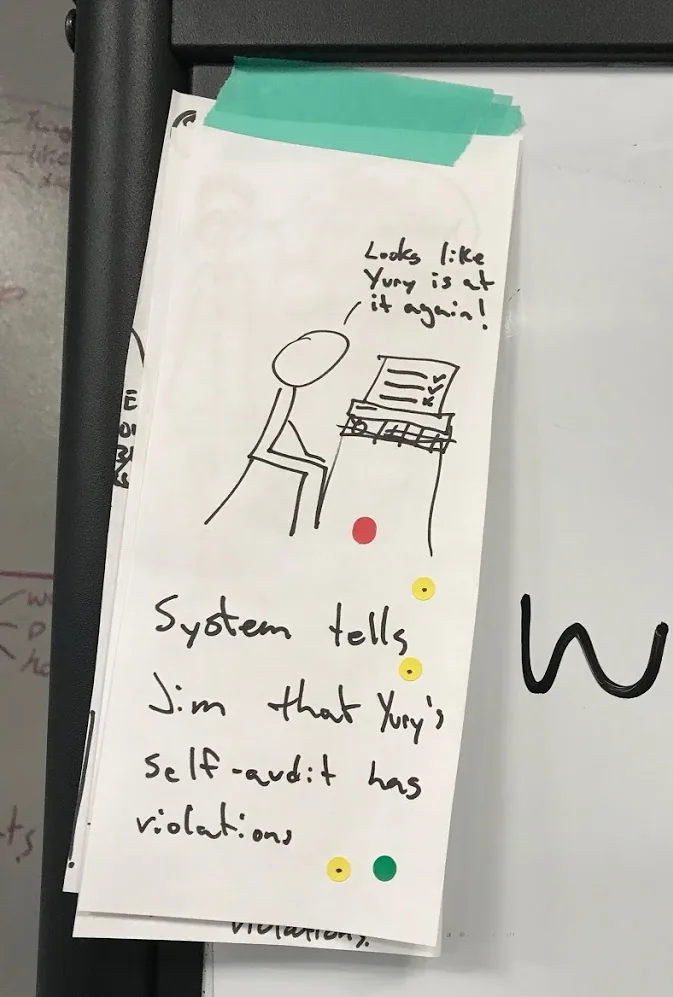 Looks like
Yury is at
it again!
System tells
Jim that Yury's
self-audit has
violations
violations.
W